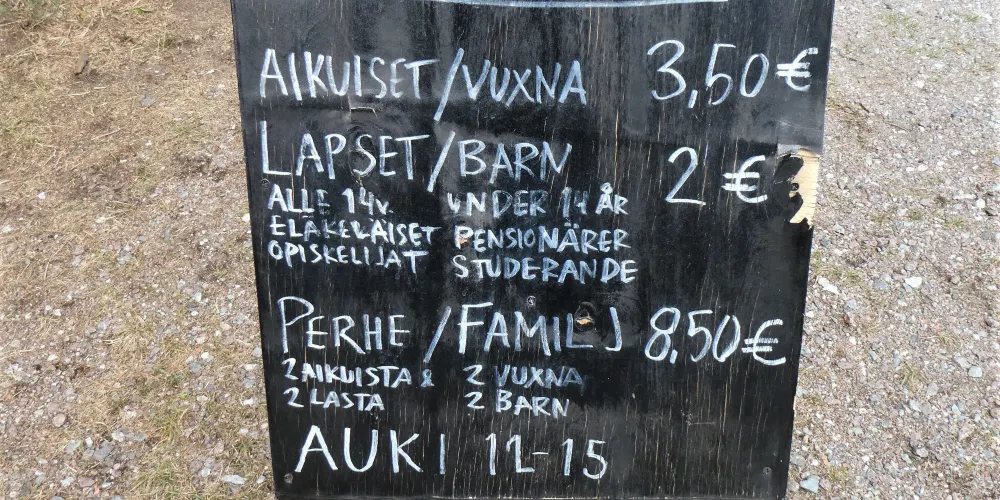 AIKUISET/VUXNA 3,50€
LAPSET/BARN 2€
ALLE 14V. UNDER 14 ÅR
ELÄKELÄISET PENSIONÄRER
OPISKELIJAT STUDERANDE
PERHE/FAMILJ 8,50€
2 AIKUISTA & 2 VUXNA
2 LASTA 2 BARN
AUKI 11-15